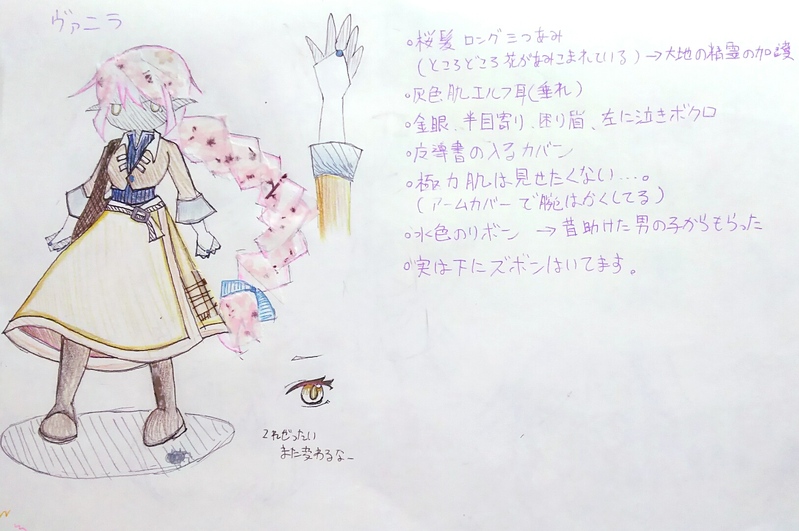 ヴァニラ
○桜髪 ロング三つあみ
(ところどころ花があみこまれている)→大地の精霊の加護
○灰色肌エルフ耳(垂れ)
○金眼、半目寄り、困り眉、左に泣きボクロ
○魔導書の入るカバン
○極力肌は見せたくない…。
(アームカバーで腕はかくしてる)
○水色のリボン →昔助けた男の子からもらった
○実は下にズボンはいてます。
これぜったい
また変わるなー